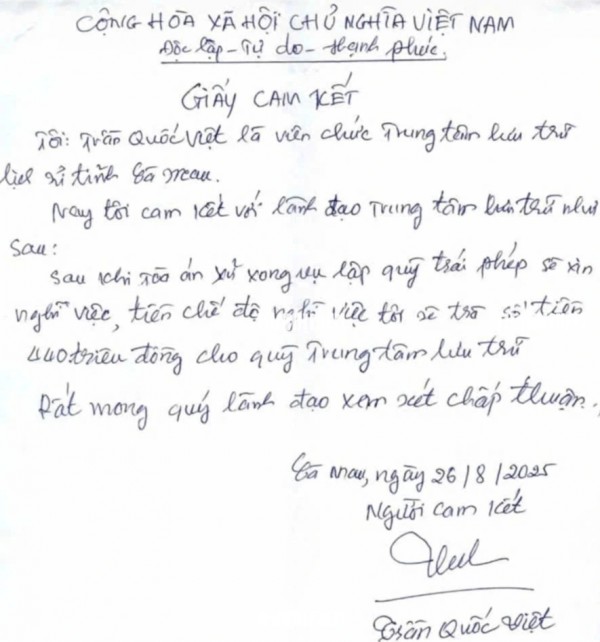 CỘNG HÒA XÃ HỘI CHỦ NGHĨA VIỆT NAM
Độc lập - Tự do - Hạnh phúc.
GIẤY CAM KẾT
Tôi: Trần Quốc Việt là viên chức Trung tâm lưu trữ
lịch sử tỉnh Cà Mau.
Nay tôi cam kết với lãnh đạo Trung tâm lưu trữ như
Sau:
Sau khi Tòa án xử xong vụ lập quỹ trái phép sẽ xin
nghỉ việc, tiền chế độ nghỉ việc tôi sẽ trả số tiền
440 triệu đồng cho quỹ Trung tâm lưu trữ
Rất mong quý lãnh đạo xem xét chấp thuận.
Cà Mau, ngày 26/8/2025
Người cam kết
Trần Quốc Việt